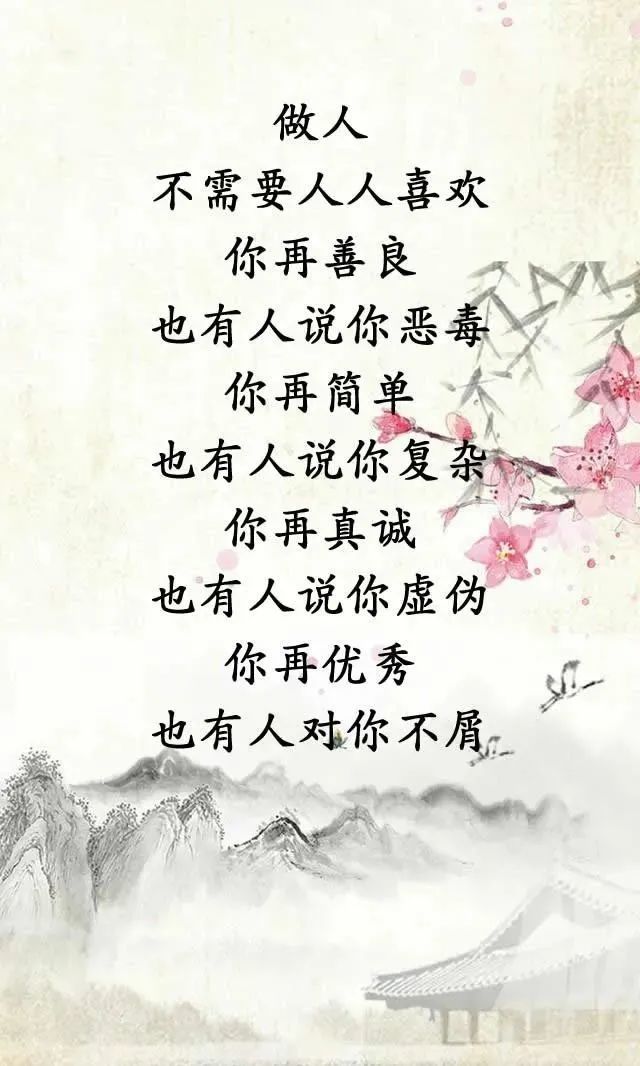 做人
不需要人人喜欢
你再善良
也有人说你恶毒
你再简单
也有人说你复杂
你再真诚
也有人说你虚伪
你再优秀
也有人对你不屑